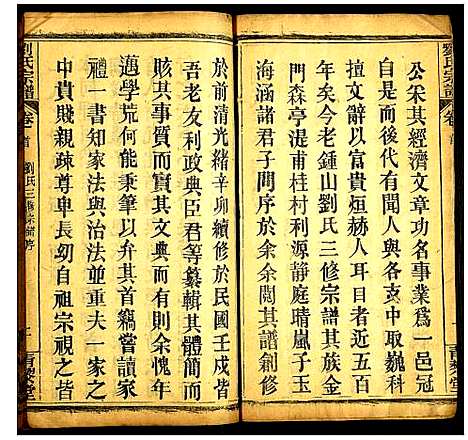 劉氏宗譜
卷首
公宋其經濟文章功名事業爲一邑冠
首而後代有聞人與各史中取巍科
擅文辭以富貴烜赫人耳目者近五百
年矣今老鍾山劉氏三修宗譜其族金
門森亭湜甫桂村利源靜庭晴嵐子玉
海涵諸君子問序於余余閱其譜創修
於前清光緒辛卯續修於民國壬戍皆
吾老友利政典臣君等纂輯其體簡而
賅其事質而實其文典而有法余愧年
邁學荒何能秉筆以弁其首竊嘗讀家
禮一書知家法與治法並重夫一家之
中貴賤親疎尊卑長幼自祖宗視之皆
劉氏宗譜
卷首
劉氏三修宗譜序
二
青藜堂